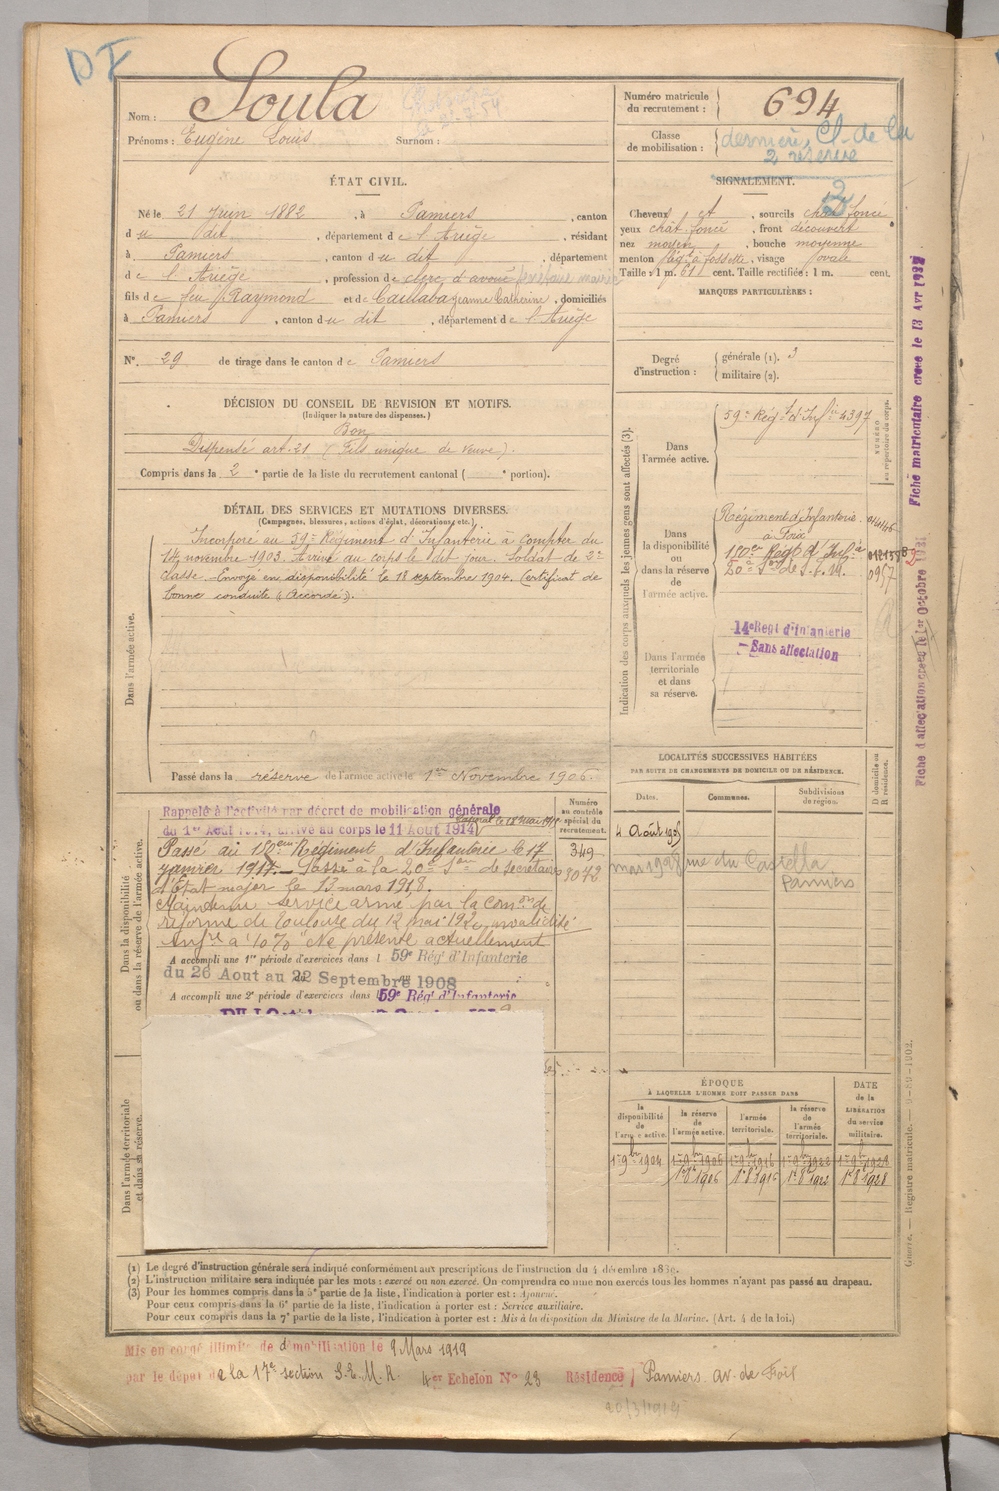 DF
Nom : Soula
Prénoms : Eugène Louis Surnom :
Numéro matricule du recrutement : 694
Classe de mobilisation : dernière Cl. de la 2 réserve
ÉTAT CIVIL.
Né le 21 Juin 1882, à Pamiers, canton
du dit, département de l'Ariège, résidant
à Pamiers, canton du dit, département
de l'Ariège, profession de clerc d'avoué
fils de feu Raymond et de Caillaba Jeanne Catherine, domiciliés
à Pamiers, canton du dit, département de l'Ariège
SIGNALEMENT.
2
Cheveux et, sourcils chât foncé
yeux chât. foncé, front découvert
nez moyen, bouche moyenne
menton à fossette, visage ovale
Taille : 1 m. 61 cent. Taille rectifiée : 1 m. cent.
MARQUES PARTICULIÈRES :
N° 29 de tirage dans le canton de Pamiers
Degré d'instruction : générale (1). 3
militaire (2).
DÉCISION DU CONSEIL DE REVISION ET MOTIFS.
(Indiquer la nature des dispenses.)
Bon
Dispensé art. 21 (Fils unique de veuve).
Compris dans la 2e partie de la liste du recrutement cantonal ( e portion).
DÉTAIL DES SERVICES ET MUTATIONS DIVERSES.
(Campagnes, blessures, actions d'éclat, décorations, etc.)
Dans l'armée active.
Incorporé au 59e Régiment d'Infanterie à compter du
14 novembre 1903. Arrivé au corps le dit jour. Soldat de 2e
classe. Envoyé en disponibilité le 18 septembre 1904. Certificat de
bonne conduite "Accordé".
Passé dans la réserve de l'armée active le 1er Novembre 1906.
Indication des corps auxquels les jeunes gens sont affectés (3).
Dans l'armée active.
59e Régt d'Infie 4397
NUMÉRO au répertoire du corps.
Dans la disponibilité ou dans la réserve de l'armée active.
Régiment d'Infanterie
à Foix
20e Son de S.E.M. 0957
Dans l'armée territoriale et dans sa réserve.
14e Régt d'Infanterie
Sans affectation
Fiche matriculaire créée le 13 Avr 1937
Fiche d'affectation créée le 1er Octobre 1931
LOCALITÉS SUCCESSIVES HABITÉES
PAR SUITE DE CHANGEMENTS DE DOMICILE OU DE RÉSIDENCE.
Dates. Communes. Subdivisions de région. D domicile ou R résidence.
4 Août
mai 1928 rue du Castella
Pamiers
Dans la disponibilité ou dans la réserve de l'armée active.
Numéro au contrôle spécial du recrutement.
349
3072
Rappelé à l'activité par décret de mobilisation générale
du 1er Août 1914, arrivé au corps le 11 Août 1914
Passé au Régiment d'Infanterie le 17
janvier 1917. Passé à la 20e Son de Secrétaires
d'Etat major le 13 mars 1918.
Maintenu service armé par la Comon de
réforme de Toulouse du 12 mai 1920, invalidité
Infre à 10 % "Ne présente actuellement
A accompli une 1re période d'exercices dans l 59e Rég' d'Infanterie
du 26 Aout au 22 Septembre 1908
A accompli une 2e période d'exercices dans l 59e Rég' d'Infanterie
Dans l'armée territoriale et dans sa réserve.
ÉPOQUE
À LAQUELLE L'HOMME DOIT PASSER DANS
la disponibilité de l'armée active. la réserve de l'armée active. l'armée territoriale. la réserve de l'armée territoriale.
DATE de la LIBÉRATION du service militaire.
1er 9bre 1904 1er 9bre 1906 1er 9bre 1916 1er 9bre 1922 1er 9bre 1928
1er 8bre 1906 1er 8bre 1916 1er 8bre 1922 1er 8bre 1928
(1) Le degré d'instruction générale sera indiqué conformément aux prescriptions de l'instruction du 4 décembre 1889.
(2) L'instruction militaire sera indiquée par les mots : exercé ou non exercé. On comprendra comme non exercés tous les hommes n'ayant pas passé au drapeau.
(3) Pour les hommes compris dans la 5e partie de la liste, l'indication à porter est : Ajourné.
Pour ceux compris dans la 6e partie de la liste, l'indication à porter est : Service auxiliaire.
Pour ceux compris dans la 7e partie de la liste, l'indication à porter est : Mis à la disposition du Ministre de la Marine. (Art. 4 de la loi.)
Guerre. — Registre matricule. — 1902.
Mis en congé illimité de démobilisation le 9 Mars 1919
par le dépôt de la 17e section S.E.M.R. 4er Echelon N° 23 Résidence Pamiers av. de Foix
20/3/1919